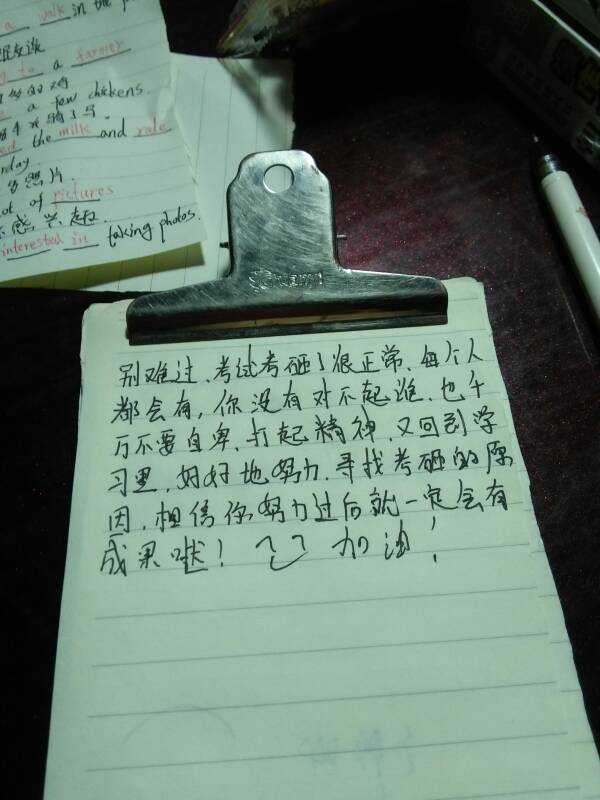 a walk in the
to a farmer
a few chickens.
the milk and
rday.
多照片.
ot of pictures
感兴趣.
interested in taking photos.
别难过、考试考砸了很正常、每个人
都会有,你没有对不起谁.也千
万不要自卑、打起精神、又回到学
习里,好好地努力.寻找考砸的原
因,相信你努力过后就一定会有
成果哒! 加油!